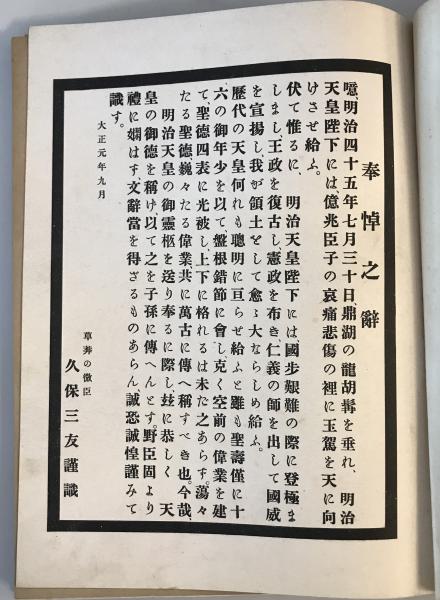 奉悼之辭
噫、明治四十五年七月三十日、鼎湖の龍胡髯を垂れ、　明治
天皇陛下には億兆臣子の哀痛悲傷の裡に玉駕を天に向
けさせ給ふ。
伏て惟るに、　明治天皇陛下には、國步艱難の際に登極ま
しまし、王政を復古し、憲政を布き仁義の師を出して國威
を宣揚し、我が領土をして愈〻大ならしめ給ふ。
歷代の天皇何れも聰明に亘らせ給ふと雖も聖壽僅に十
六の御年少を以て、盤根錯節に會し、克く空前の偉業を建
て、聖德四表に光被し、上下に格れるは未だ之あらず。蕩々
たる聖德、巍々たる偉業共に萬古に傳へ稱すべき也。今哉、
明治天皇の御靈柩を送り奉るに際し、玆に恭しく　天
皇の御德を稱け、以て之を子孫に傳へんとす。野臣固より
禮に嫺はず、文辭當を得ざるものあらん、誠恐誠惶謹みて
識す。
大正元年九月
草莽の微臣
久保三友謹識